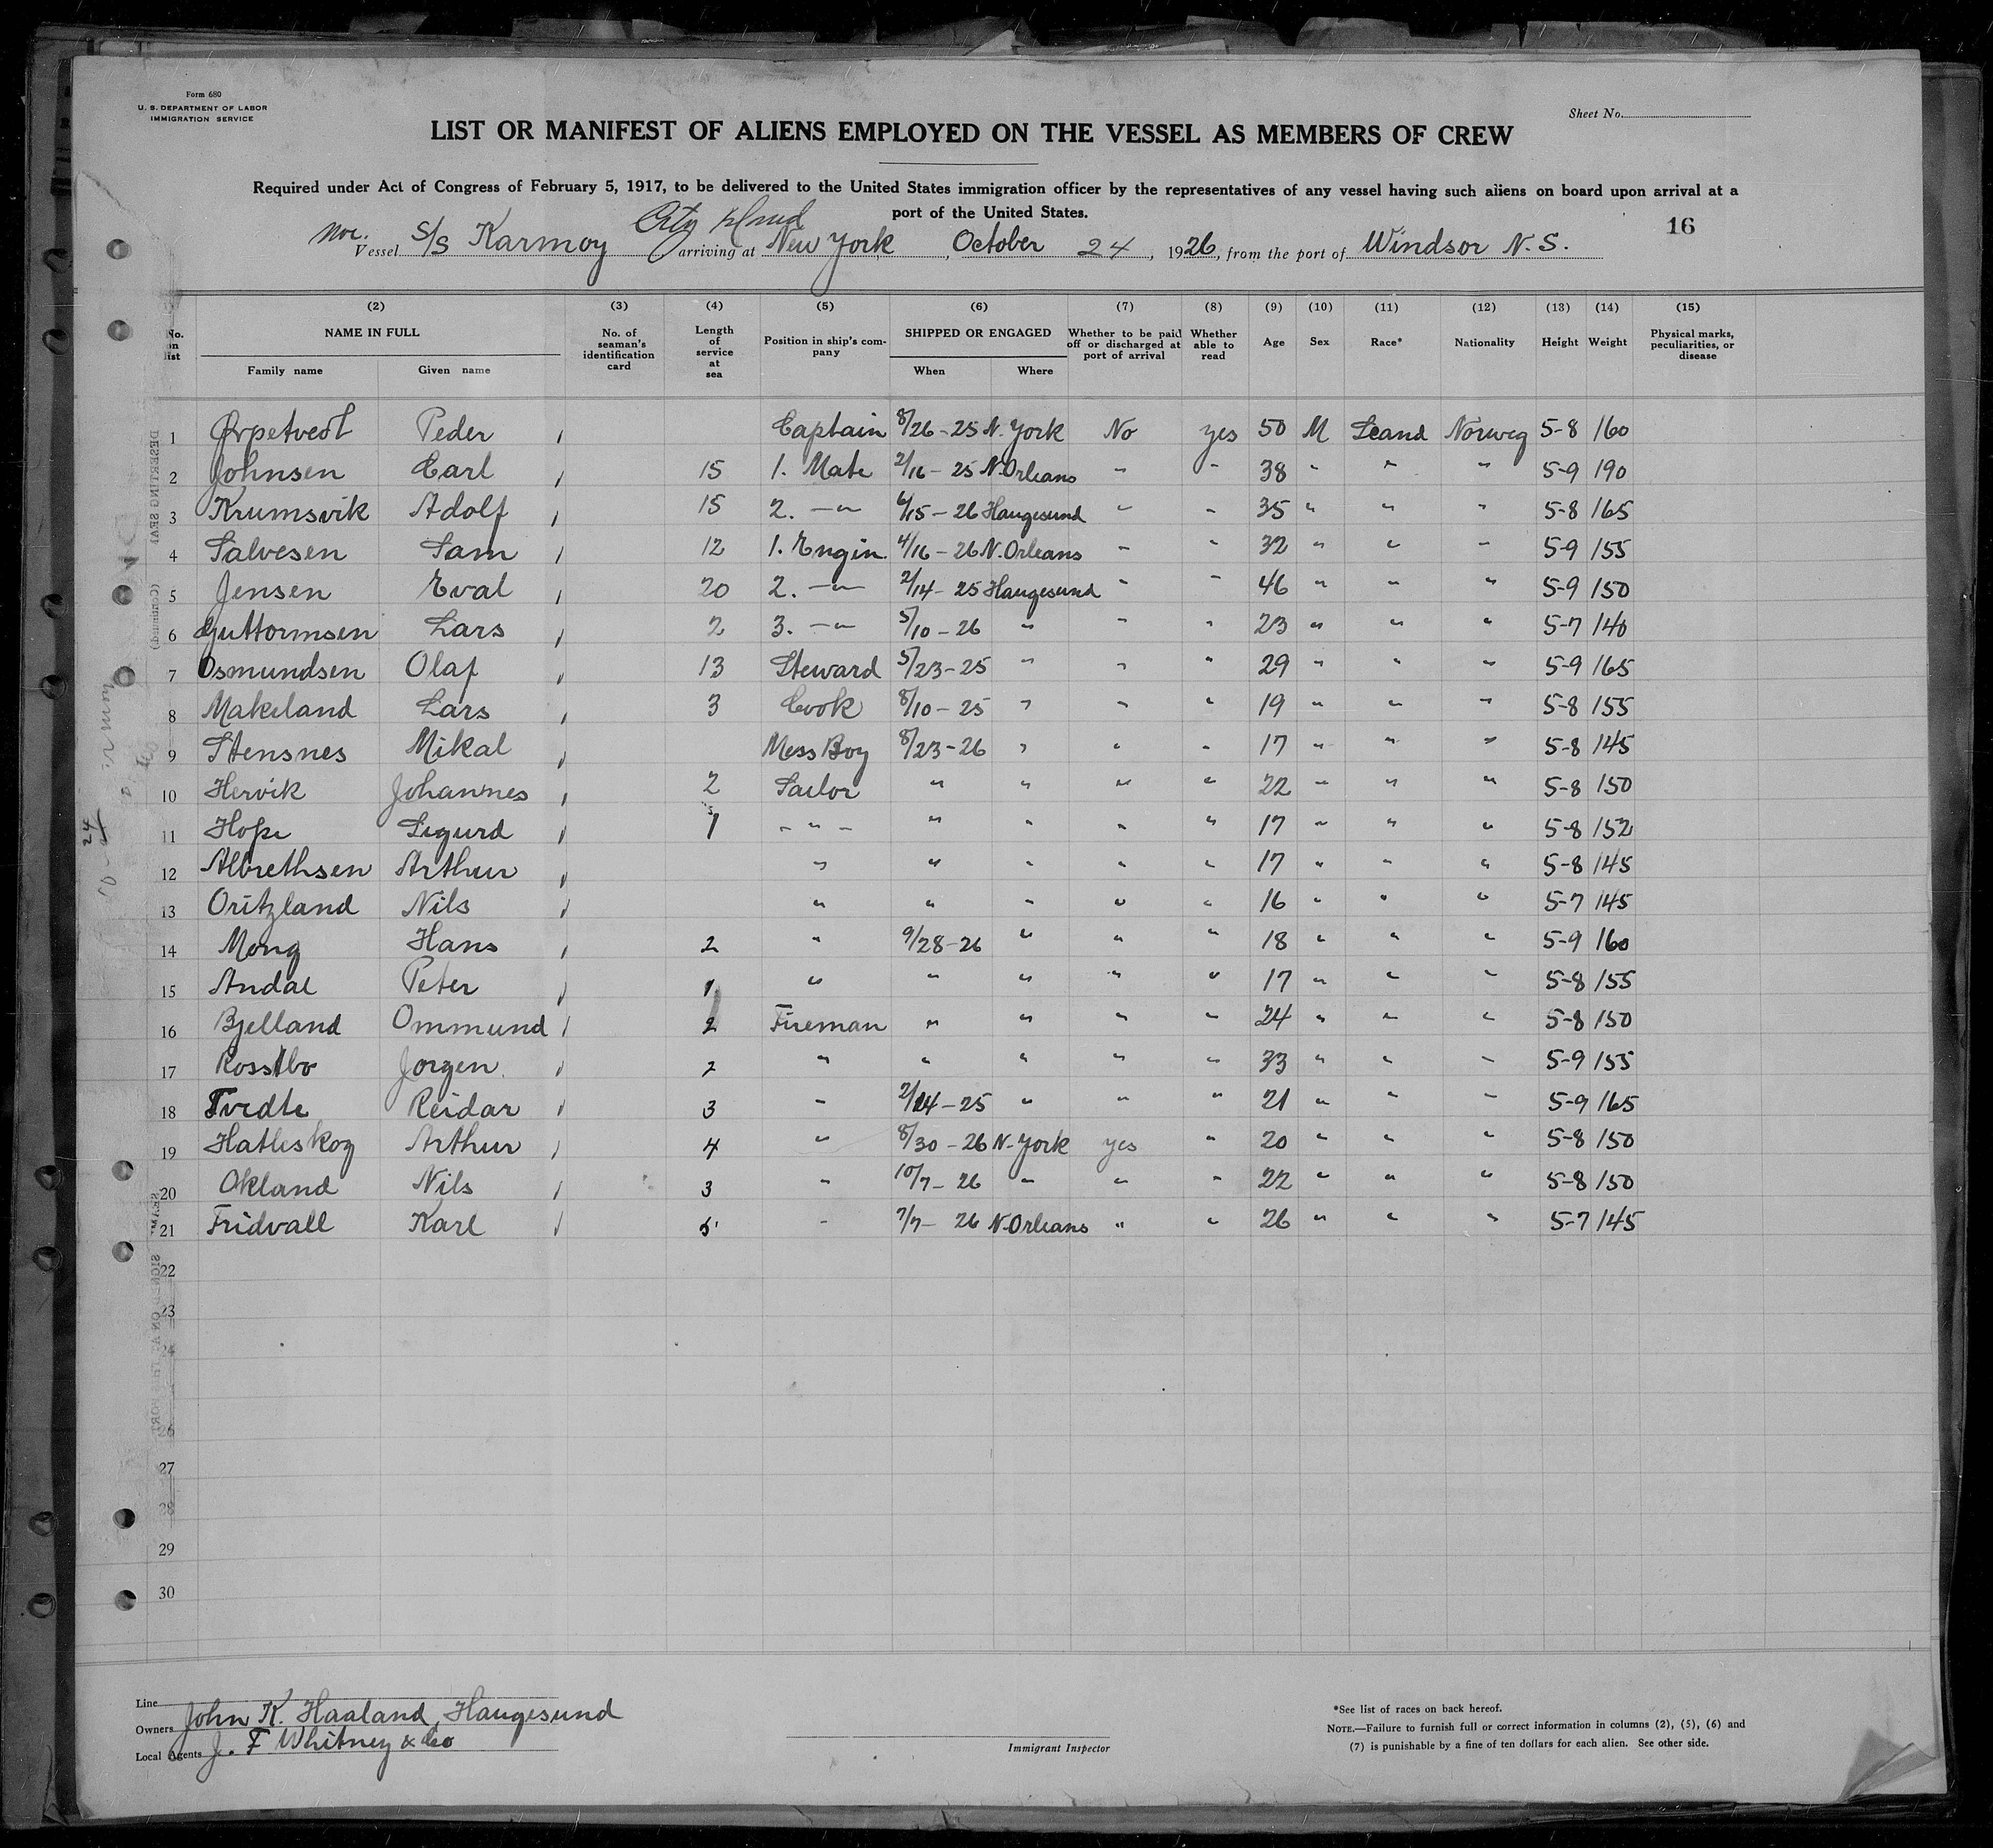 Form 680
U. S. DEPARTMENT OF LABOR
IMMIGRATION SERVICE
Sheet No.
LIST OR MANIFEST OF ALIENS EMPLOYED ON THE VESSEL AS MEMBERS OF CREW
Required under Act of Congress of February 5, 1917, to be delivered to the United States immigration officer by the representatives of any vessel having such aliens on board upon arrival at a
port of the United States.
16
City Island
Nor. Vessel S/S Karmoy arriving at New York, October 24, 1926, from the port of Windsor N. S.
(2) (3) (4) (5) (6) (7) (8) (9) (10) (11) (12) (13) (14) (15)
No. on list NAME IN FULL Family name Given name No. of seaman's identification card Length of service at sea Position in ship's company SHIPPED OR ENGAGED When Where Whether to be paid off or discharged at port of arrival Whether able to read Age Sex Race* Nationality Height Weight Physical marks, peculiarities, or disease
1 Peder Captain 8/26-25 N. York No yes 50 M Scand Norweg 5-8 160
2 Johnsen Carl 15 1. Mate 2/16-25 N.Orleans " " 38 " " " 5-9 190
3 Krumsvik Adolf 15 2. —"— 6/15-26 Haugesund " " 35 " " " 5-8 165
4 Salvesen Sam 12 1. Engin 4/16-26 N.Orleans " " 32 " " " 5-9 155
5 Jensen Eval 20 2. —"— 2/14-25 Haugesund " " 46 " " " 5-9 150
6 Guttormsen Lars 2 3. —"— 5/10-26 " " " 23 " " " 5-7 140
7 Osmundsen Olaf 13 Steward 5/23-25 " " " 29 " " " 5-9 165
8 Makeland Lars 3 Cook 8/10-25 " " " 19 " " " 5-8 155
9 Stensnes Mikal Mess Boy 8/23-26 " " " 17 " " " 5-8 145
10 Hervik Johannes 2 Sailor " " " " 22 " " " 5-8 150
11 Hope Sigurd 1 -"- " " " " 17 " " " 5-8 152
12 Albrethsen Arthur " " " " " 17 " " " 5-8 145
13 Oritzland Nils " " " " " 16 " " " 5-7 145
14 Mong Hans 2 " 9/28-26 " " " 18 " " " 5-9 160
15 Andal Peter 1 " " " " " 17 " " " 5-8 155
16 Bjelland Ommund 2 Fireman " " " " 24 " " " 5-8 150
17 Jorgen 2 " " " " " 33 " " " 5-9 155
18 Tvedte Reidar 3 " 2/24-25 " " " 21 " " " 5-9 165
19 Hatleskog Arthur 4 " 8/30-26 N. York yes " 20 " " " 5-8 150
20 Okland Nils 3 " 10/7-26 " " " 22 " " " 5-8 150
21 Fridvall Karl 5 " 7/7-26 N.Orleans " " 26 " " " 5-7 145
22
23
24
26
27
28
29
30
Line
Owners John K. Haaland, Haugesund
Local Agents J. F Whitney & Co
Immigrant Inspector
*See list of races on back hereof.
NOTE.—Failure to furnish full or correct information in columns (2), (5), (6) and
(7) is punishable by a fine of ten dollars for each alien. See other side.